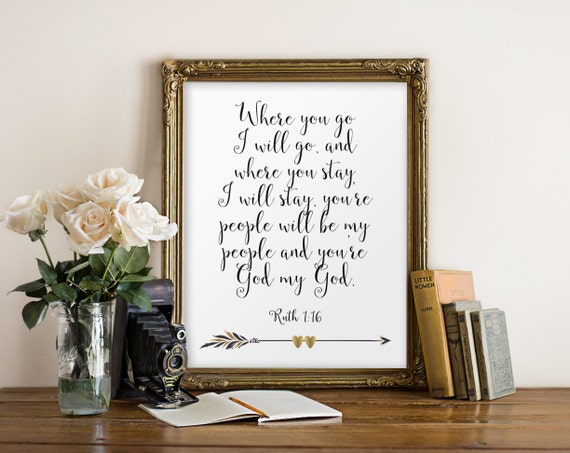 Where you go
I will go, and
where you stay,
I will stay, you're
people will be my
people and you're
God my God.
Ruth 1:16
LITTLE
WOMEN